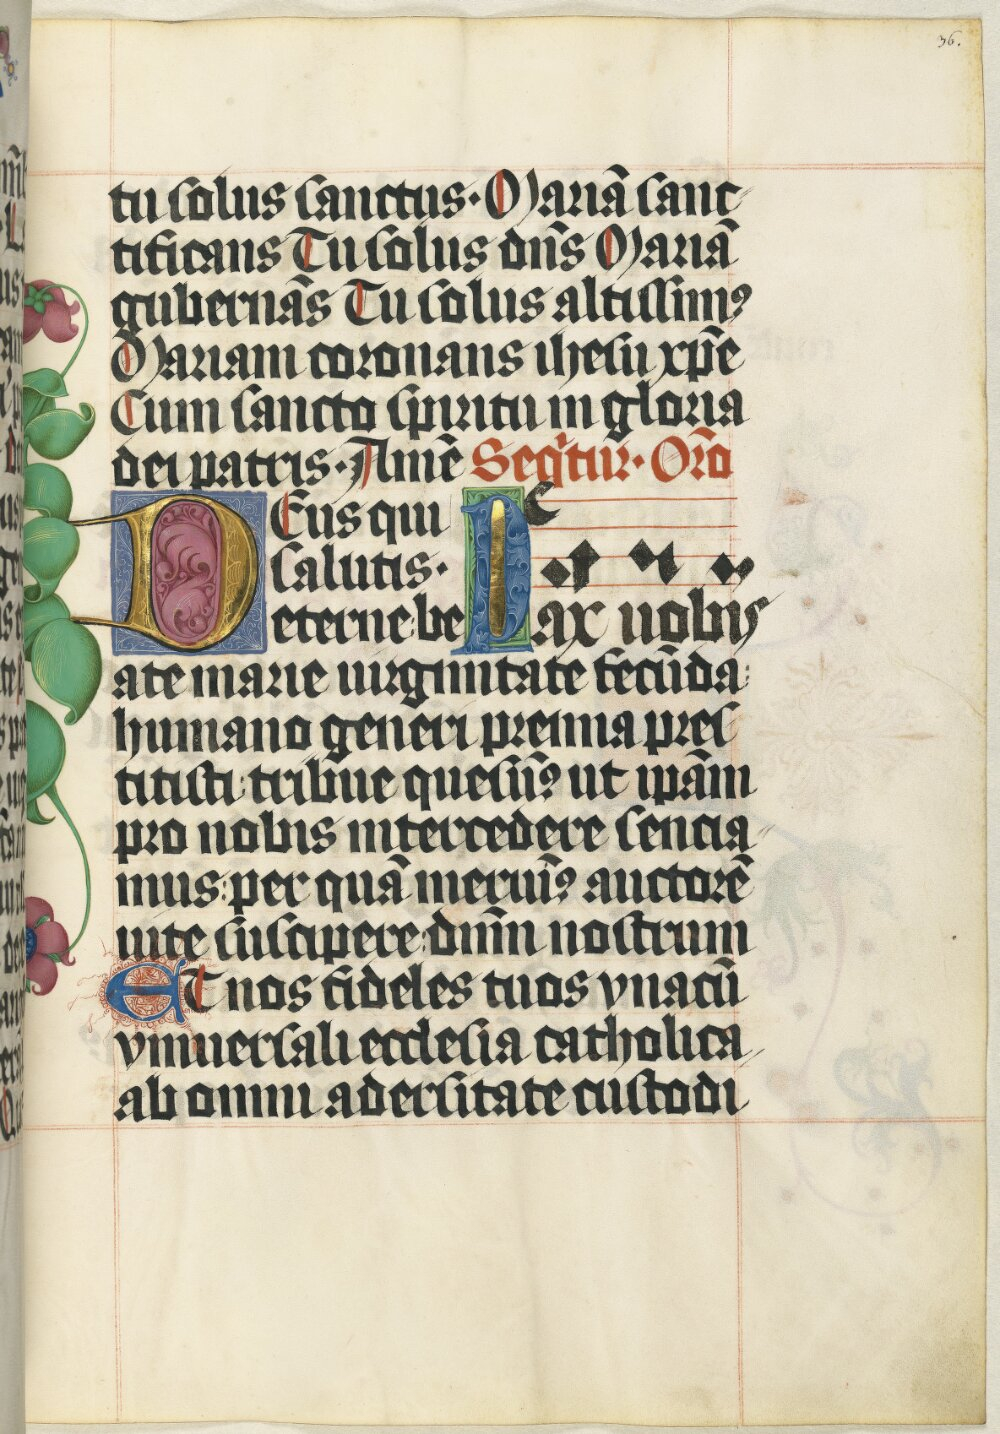 36.
tu solus sanctus· Mariā sanc
tificans Tu solus dn̄s Mariā
gubernās Tu solus altissimꝯ
Mariam coronans ihesu xp̄e
Cum sancto spiritu in gloria
dei patris· Amē Seqͥtur· Orō
DEus qui
salutis·
eterne be
Pax uobis
ate marie uirginitate fecūda:
humano generi premia pres
titisti: tribue quesumꝯ ut ip̄am
pro nobis intercedere sencia
mus: per quā meruimꝯ auctorē
uite suscipere: dn̄m nostrum
ET nos fideles tuos vnacū
vniuersali ecclesia catholica
ab omni adersitate custodi